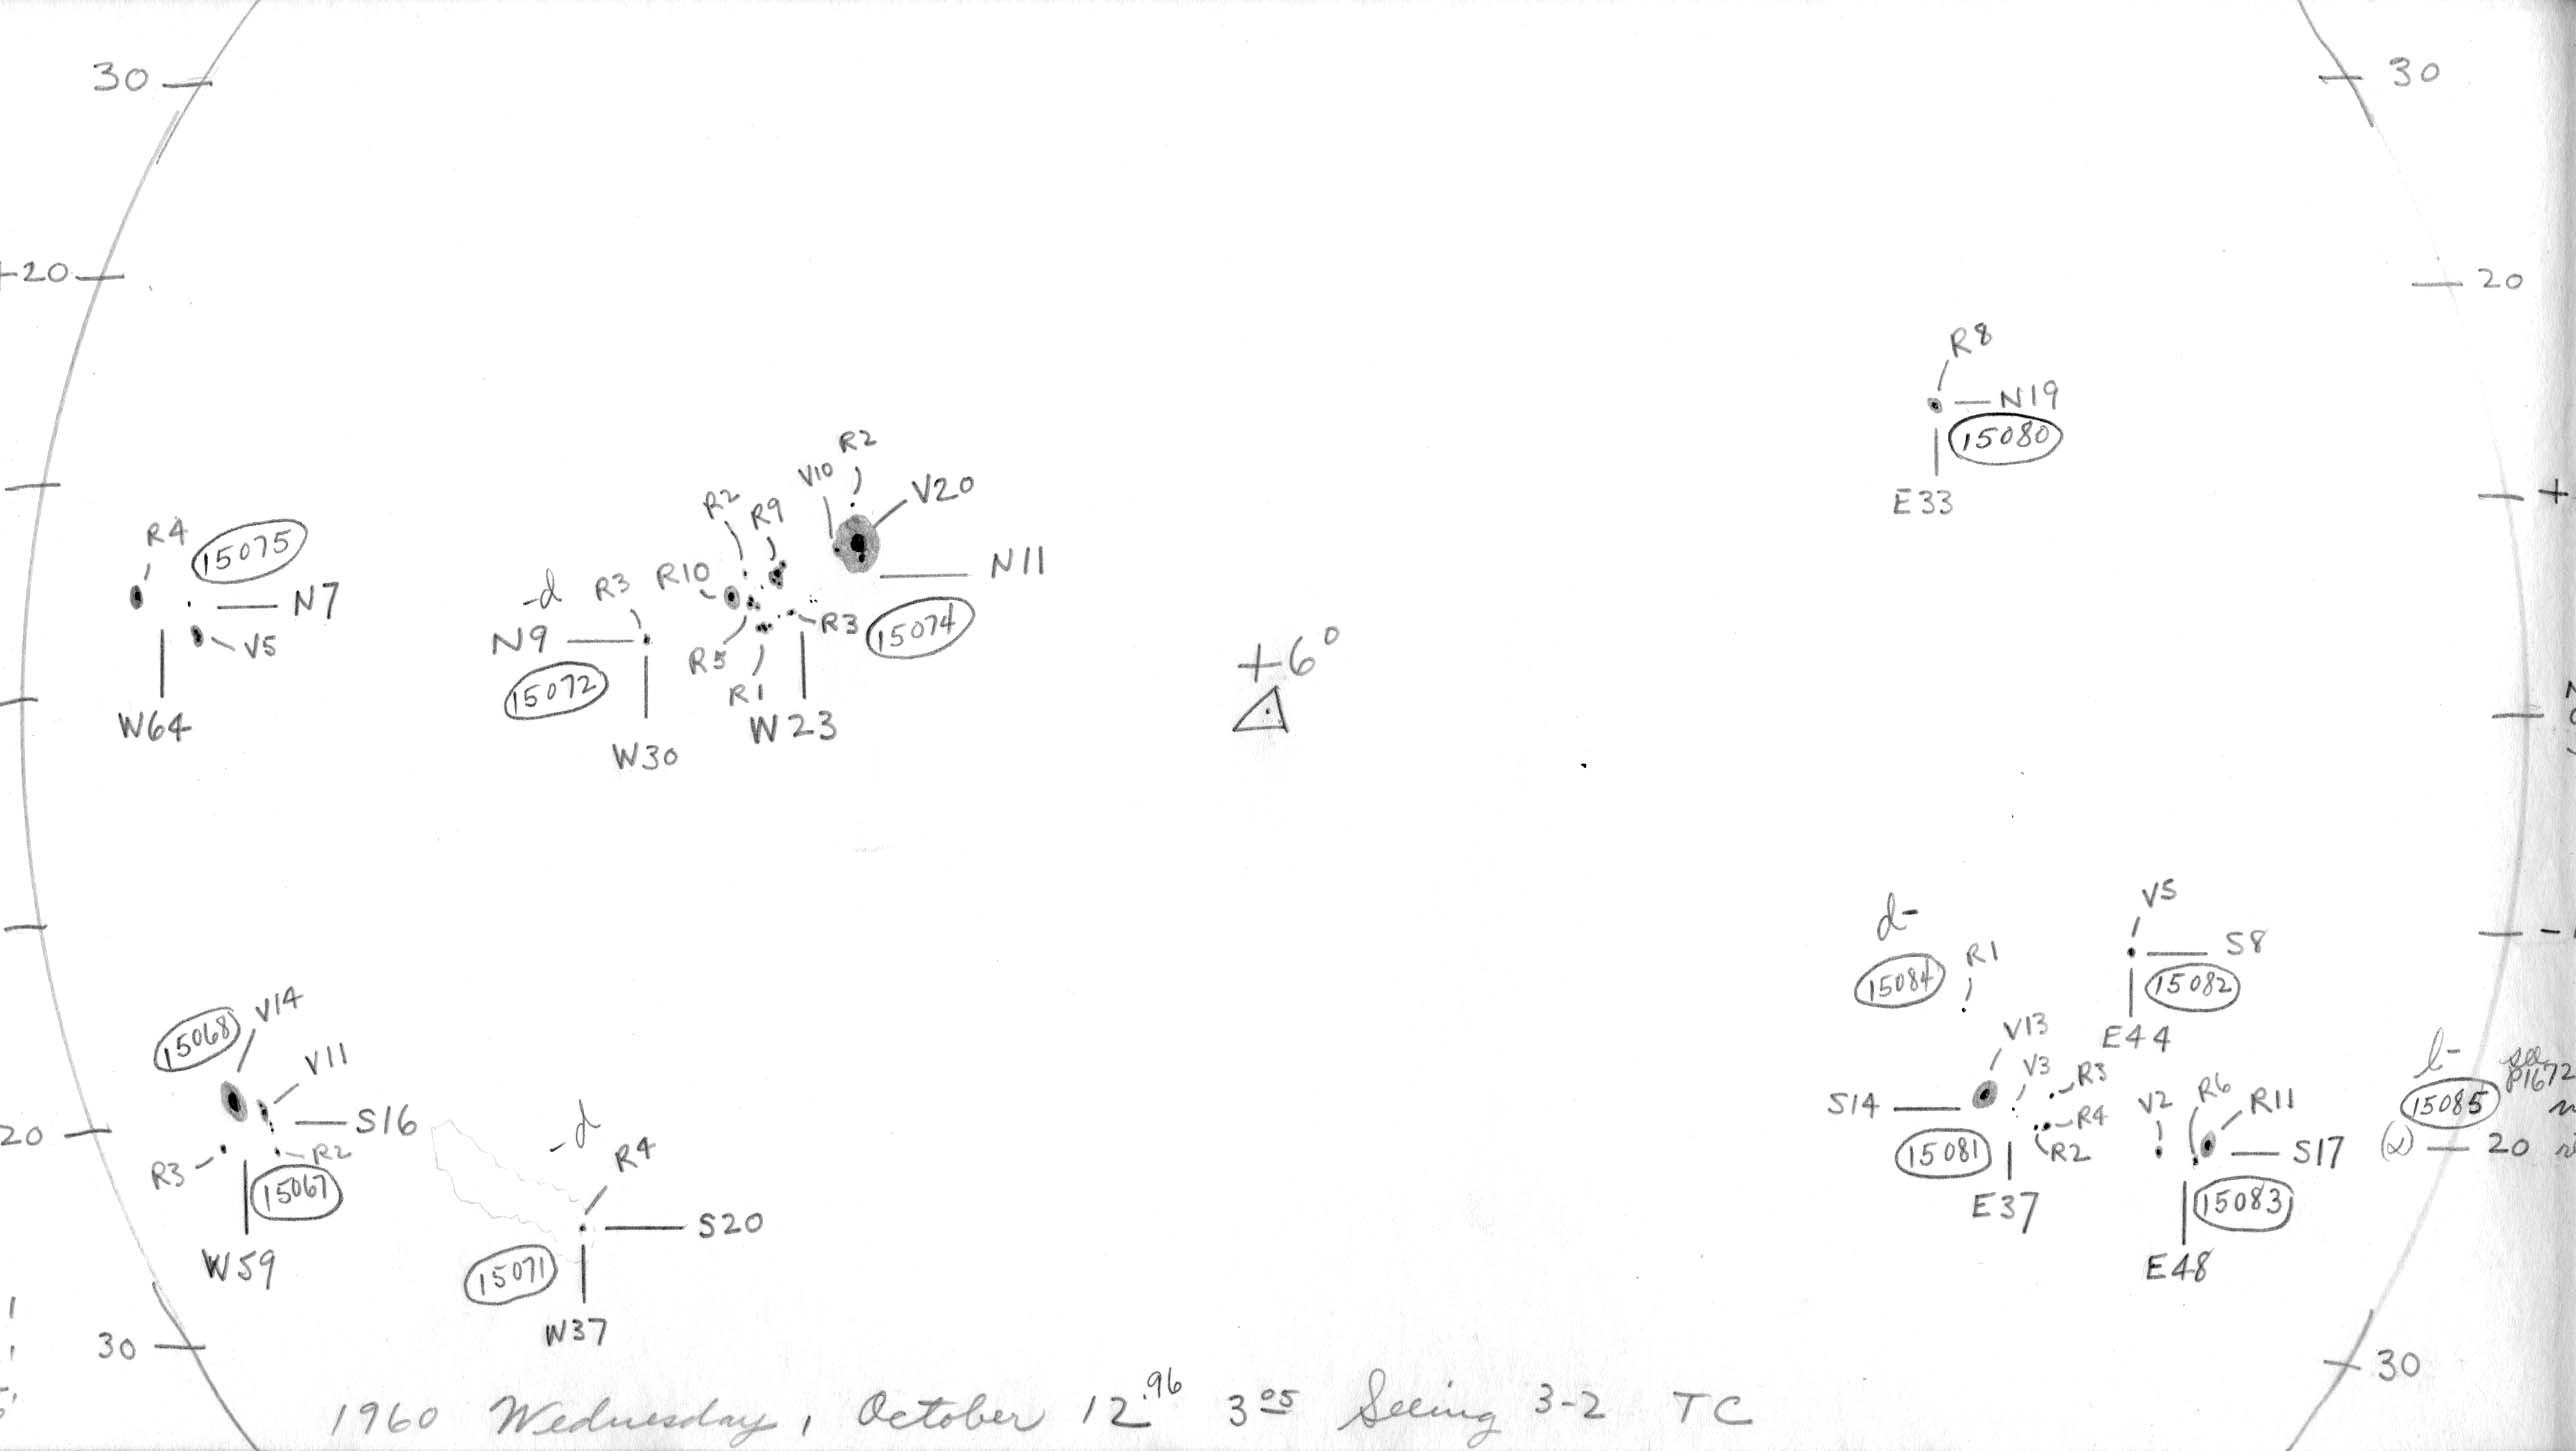 30
30
+20
20
R8
N19
15080
E33
R2
V10
V20
R2
R9
N11
R4
15075
N7
V5
W64
-d
R3
R10
N9
15072
W30
R5
R1
R3
15074
W23
+6°
+
V5
S8
15082
E44
d-
15084
R1
V13
V3
R3
R4
R2
S14
15081
E37
V2
R6
R11
S17
15083
E48
l-
see
P1672
15085
(2) 20
V14
15068
V11
S16
R2
R3
15067
W59
20
-d
R4
S20
15071
W37
30
30
1960 Wednesday, October 12.96 3 05 Seeing 3-2 TC